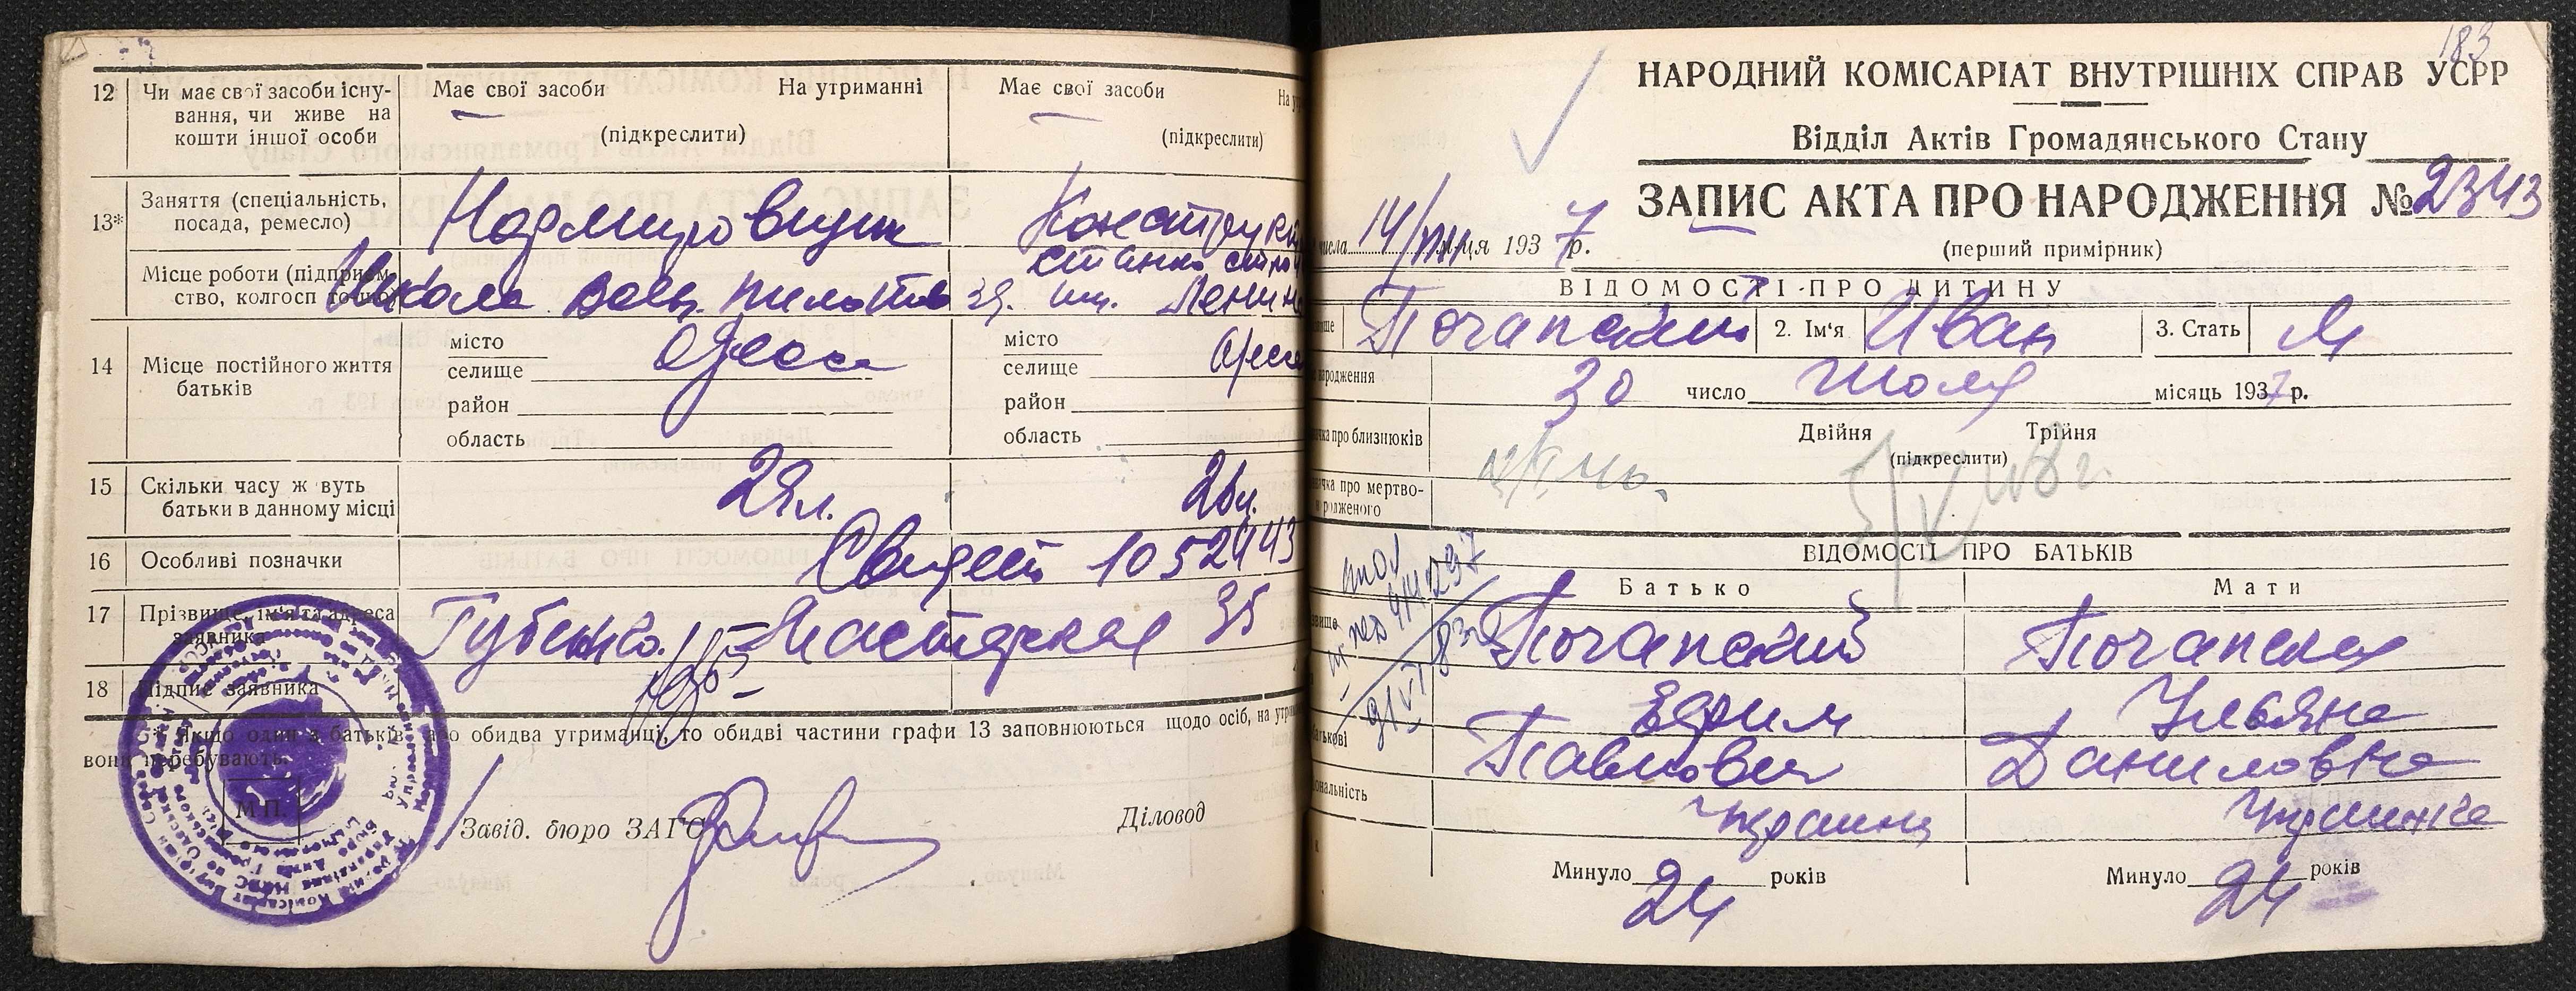 12 Чи має свої засоби існу-
вання, чи живе на
кошти іншої особи
Має свої засоби На утриманні
(підкреслити)
Має свої засоби
(підкреслити)
13* Заняття (спеціальність,
посада, ремесло)
Нормировщик
Місце роботи (підприєм-
ство, колгосп точно)
Школа воен. пилотов
зд. им. Ленина
14 Місце постійного життя
батьків
місто Одесса
селище
район
область
місто Одесса
селище
район
область
15 Скільки часу ж вуть
батьки в данному місці
24л.
16 Особливі позначки
Свидет 1052443
17 Прізвище, ім'я та адреса
заявника
Губенко Мастерская 35
18 Підпис заявника
* Якщо один з батьків або обидва утриманці, то обидві частини графи 13 заповнюються щодо осіб, на
вони перебувають.
М.П.
Завід. бюро ЗАГС
Діловод
183
НАРОДНИЙ КОМІСАРІАТ ВНУТРІШНІХ СПРАВ УСРР
Відділ Актів Громадянського Стану
ЗАПИС АКТА ПРО НАРОДЖЕННЯ № 2343
числа 14/VIII м-ця 1937 р.
(перший примірник)
ВІДОМОСТІ ПРО ДИТИНУ
Почапский 2. Ім'я Иван 3. Стать М
30 число Июля місяць 1937 р.
про близнюків Двійня Трійня
(підкреслити)
про мертво-
ВІДОМОСТІ ПРО БАТЬКІВ
Батько Мати
Почапский Почапская
Ефим Ульяна
Павлович Даниловна
украинец украинка
Минуло 24 років Минуло 24 років